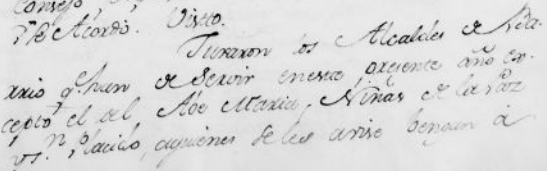 Consejo,
de Acordo. Visto.
Juraron los Alcaldes de Vda.
rrio q.e han de Servir en esta presente año ex-
cepto el del Abe Maria, Niñas de la Paz
y S.n Placido, aquienes se les avise bengan á